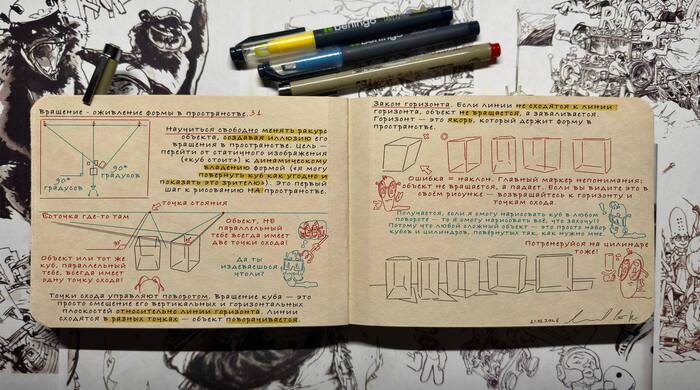 Berlingo
Berlingo
Вращение - оживление формы в пространстве. 3.1
90°
градусов
90°
градусов
Научиться свободно менять ракурс
объекта, создавая иллюзию его
вращения в пространстве. Цель —
перейти от статичного изображения
(«куб стоит») к динамическому
владению формой («я могу
повернуть куб как угодно и
показать это зрителю»). Это первый
шаг к рисованию НА пространстве.
точка стояния
Воточка где-то там
Объект, НЕ
параллельный
тебе всегда имеет
две точки схода!
Объект или тот же
куб, параллельный
тебе, всегда имеет
одну точку схода!
Да ты
издеваешься
чтоли?
Точки схода управляют поворотом. Вращение куба — это
просто смещение его вертикальных и горизонтальных
плоскостей относительно линии горизонта. Линии
сходятся в разных точках — объект поворачивается.
Закон горизонта. Если линии не сходятся к линии
горизонта, объект не вращается, а заваливается.
Горизонт — это якорь, который держит форму в
пространстве.
Ошибка = наклон. Главный маркер непонимания:
объект не вращается, а падает. Если вы видите это в
своём рисунке — возвращайтесь к горизонту и
точкам схода.
Получается, если я смогу нарисовать куб в любом
повороте — то я смогу нарисовать всё, что захочу!?
Потому что любой сложный объект — это просто набор
кубов и цилиндров, повёрнутых так, как нужно мне.
Потренеруйся на цилиндре
тоже!